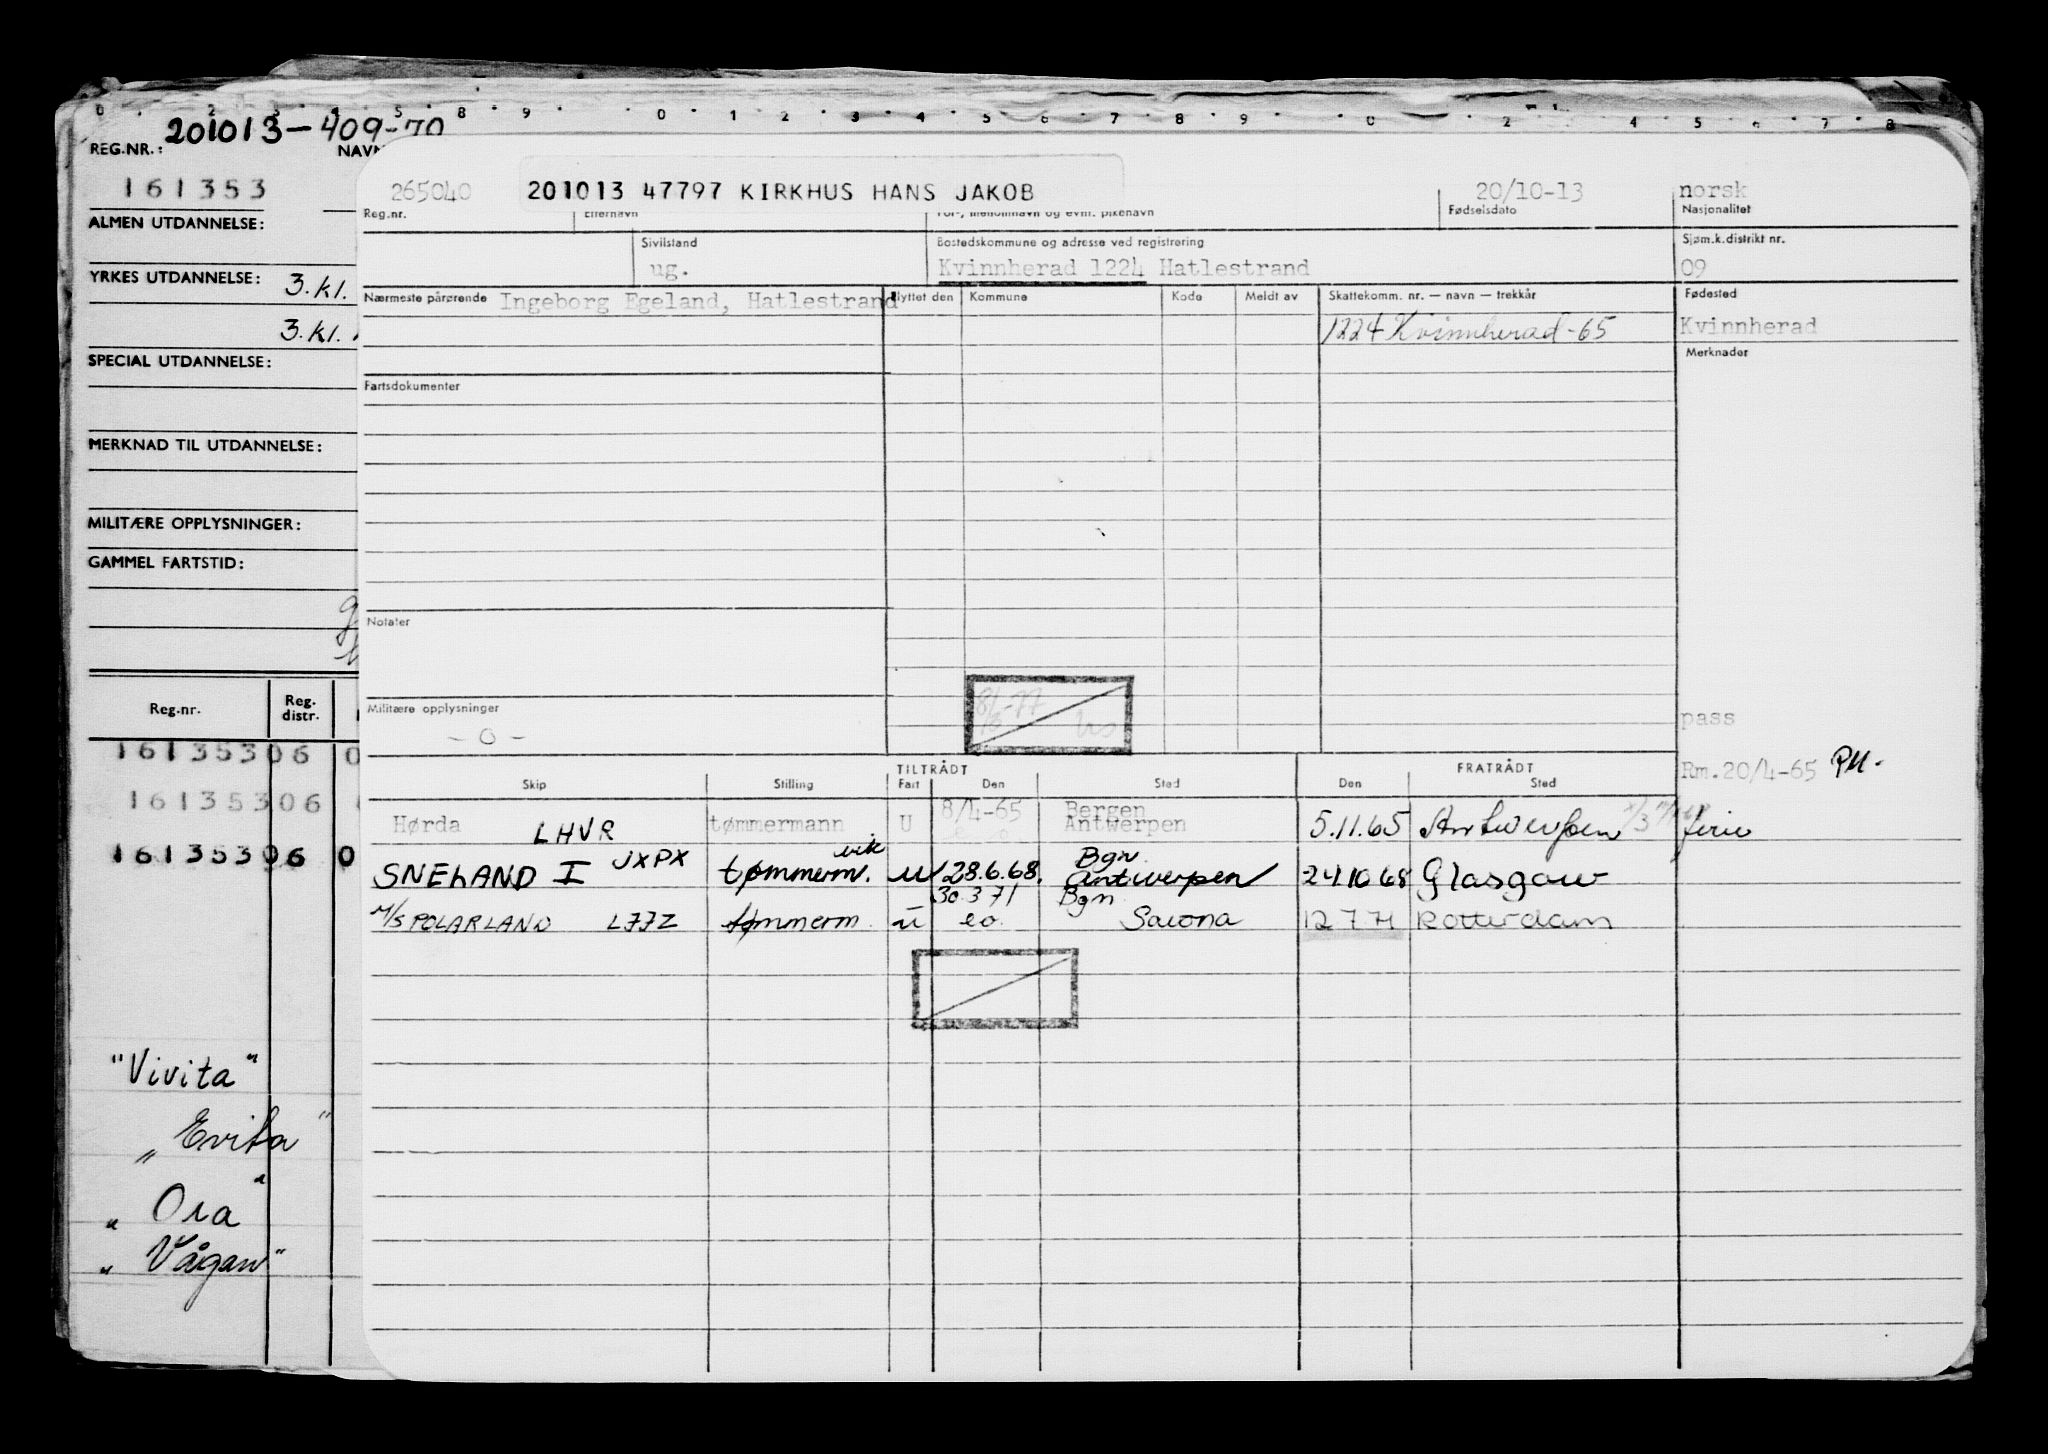 0 2 3 4 5 8 9 0 1 2 3 4 5 6 7 8 9 0 2 4 5 6 7 8
REG.NR.: 201013-409-70 NAVN
161353
ALMEN UTDANNELSE:
YRKES UTDANNELSE: 3.kl.
3.kl.
SPECIAL UTDANNELSE:
MERKNAD TIL UTDANNELSE:
MILITÆRE OPPLYSNINGER:
GAMMEL FARTSTID:
Reg.nr. Reg. distr.
161353 06 0
161353 06
161353 06 0
"Vivita"
"Evita"
"Ora"
"Vågan"
265040 201013 47797 KIRKHUS HANS JAKOB 20/10-13 norsk
Reg.nr. Etternavn For-, mellomnavn og evnt. pikenavn Fødselsdato Nasjonalitet
Sivilstand Bostedskommune og adresse ved registrering Sjøm.k.distrikt nr.
ug. Kvinnherad 1224 Hatlestrand 09
Nærmeste pårørende Ingeborg Egeland, Hatlestrand Flyttet den Kommune Kode Meldt av Skattekomm. nr. — navn — trekkår Fødested
1224 Kvinnherad-65 Kvinnherad
Merknader
Fartsdokumenter
Notater
Militære opplysninger
- 0 -
pass
Rm.20/4-65 PM.
TILTRÅDT FRATRÅDT
Skip Stilling Fart Den Sted Den Sted
8/4-65 Bergen
Hørda LHVR tømmermann U Antwerpen 5.11.65 Antwerpen ferie
SNELAND I JXPX tømmerm. vik u 28.6.68. Bgn. Antwerpen 24.10 68 Glasgow
30.3 71 Bgn
M/S POLARLAND LJJZ tømmerm. u eo. Savona 12 7 71 Rotterdam